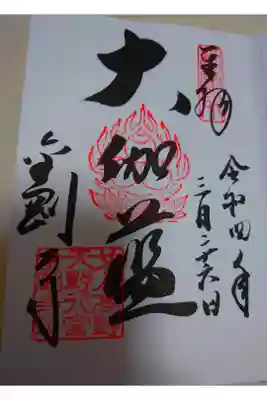 奉拝
令和四年
三月二十六日
大伽藍
金剛寺